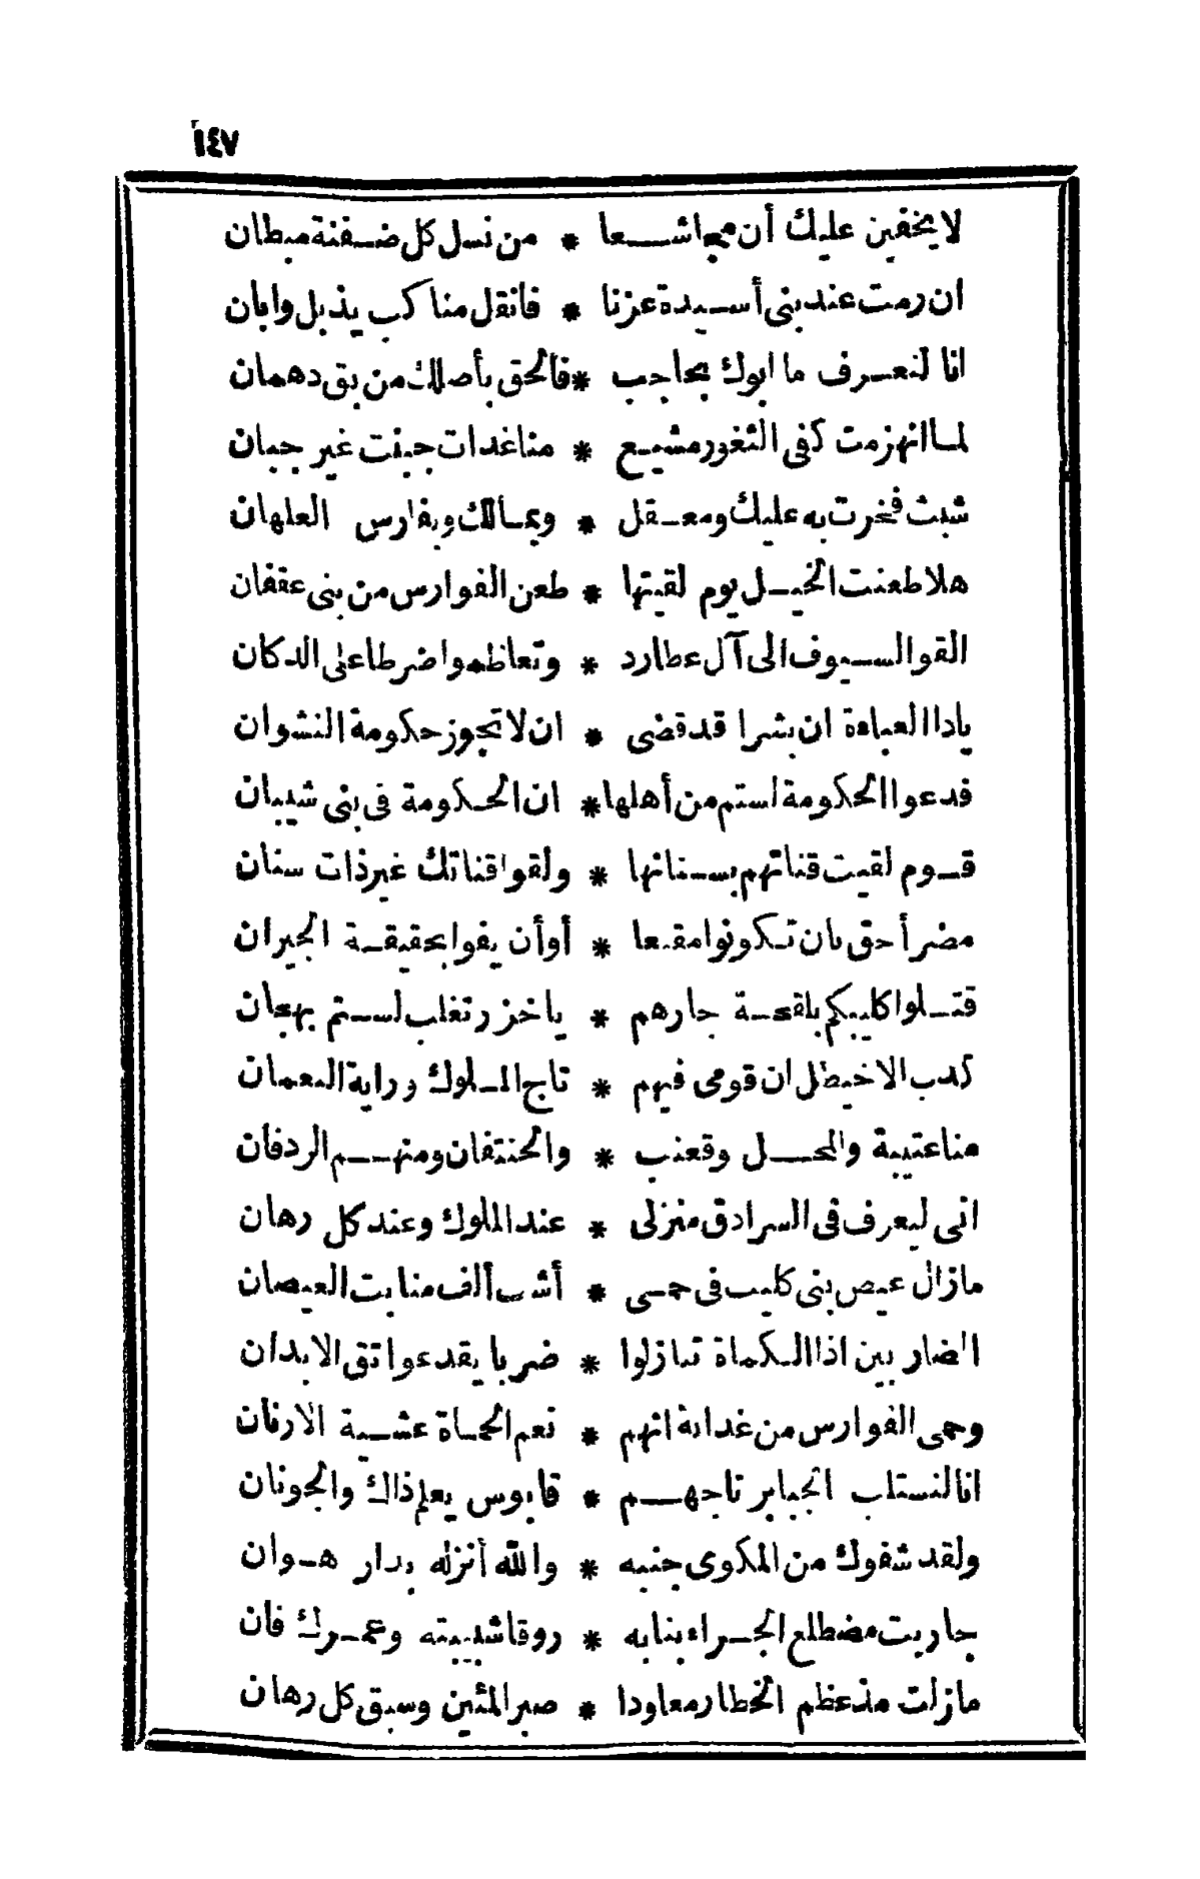 ١٤٧
لا يخفين عليك أن مجاشعا * من نسل كل ضفنة مبطان
ان رمت عند بنى أسيدة عزنا * فانقل مناكب يذبل وابان
انا لنعرف ما ابوك بحاجب * فالحق بأصلك من بنى دهمان
لما انهزمت كفى الثغور مشيع * منا غداة جبنت غير جبان
شبث فخرت به عليك ومعقل * وبمالك وبفارس العلهان
هلا طعنت الخيل يوم لقيتها * طعن الفوارس من بنى عقفان
القوا السيوف الى آل عطارد * وتعاظموا ضرطا على الدكان
ياذا العباءة ان بشرا قد قضى * ان لا تجوز حكومة النشوان
فدعوا الحكومة لستم من أهلها * ان الحكومة فى بنى شيبان
قوم لقيت قناتهم بسنانها * ولقوا قناتك غير ذات سنان
مضر أحق بان تكونوا مقنعا * أو أن يفوا بحقيقة الجيران
قتلوا كليبكم بلقحة جارهم * يا خزر تغلب لستم بهجان
كذب الاخيطل ان قومى فيهم * تاج الملوك وراية النعمان
منا عتيبة والمحل وقعنب * والحنتفان ومنهم الردفان
انى ليعرف فى السرادق منزلى * عند الملوك وعند كل رهان
مازال عيص بنى كليب فى حمى * أشب ألف منابت العيصان
الضاربين اذا الكماة تنازلوا * ضربا يقد عواتق الابدان
وحمى الفوارس من غدانة انهم * نعم الحماة عشية الارنان
انا لنستلب الجبابر تاجهم * قابوس يعلم ذاك والجونان
ولقد شفوك من المكوى جنبه * والله أنزله بدار هوان
جاريت مضطلع الجراء بنابه * روقا شبيبته وعمرك فان
مازلت مذ عظم الخطار معاودا * صبر المئين وسبق كل رهان